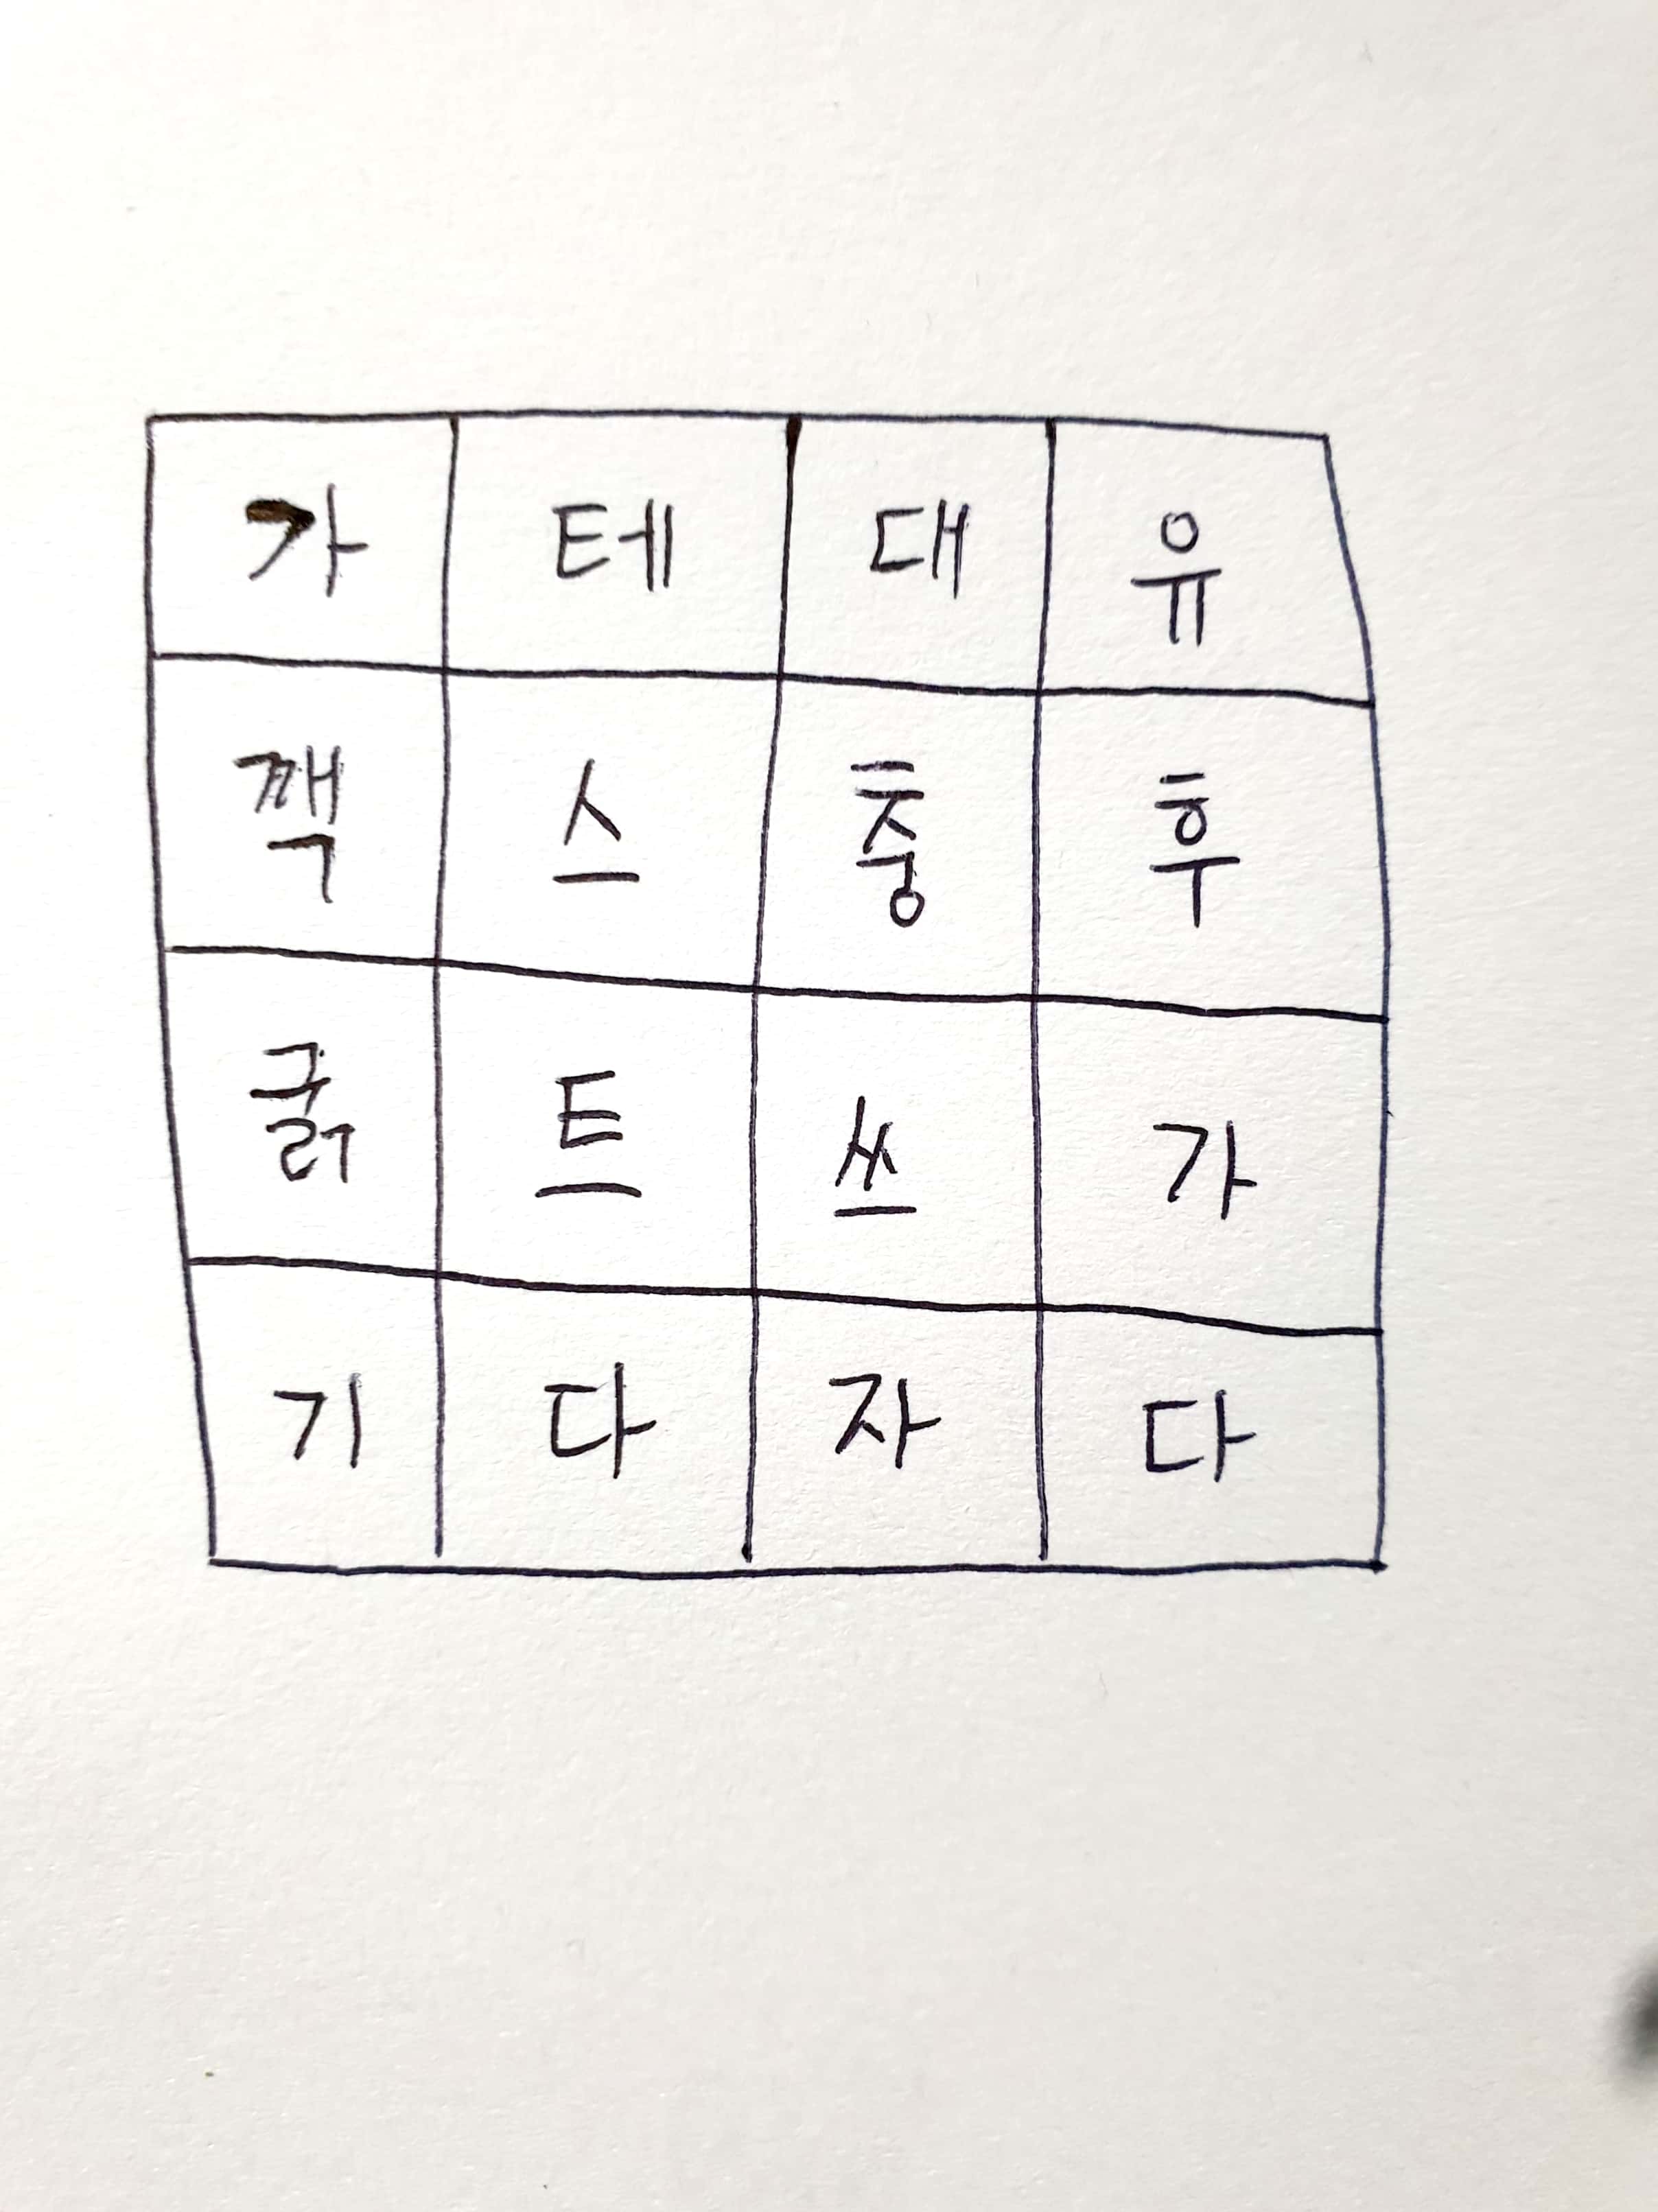 가 테 대 유
깩 스 충 후
굵 트 쓰 가
기 다 자 다